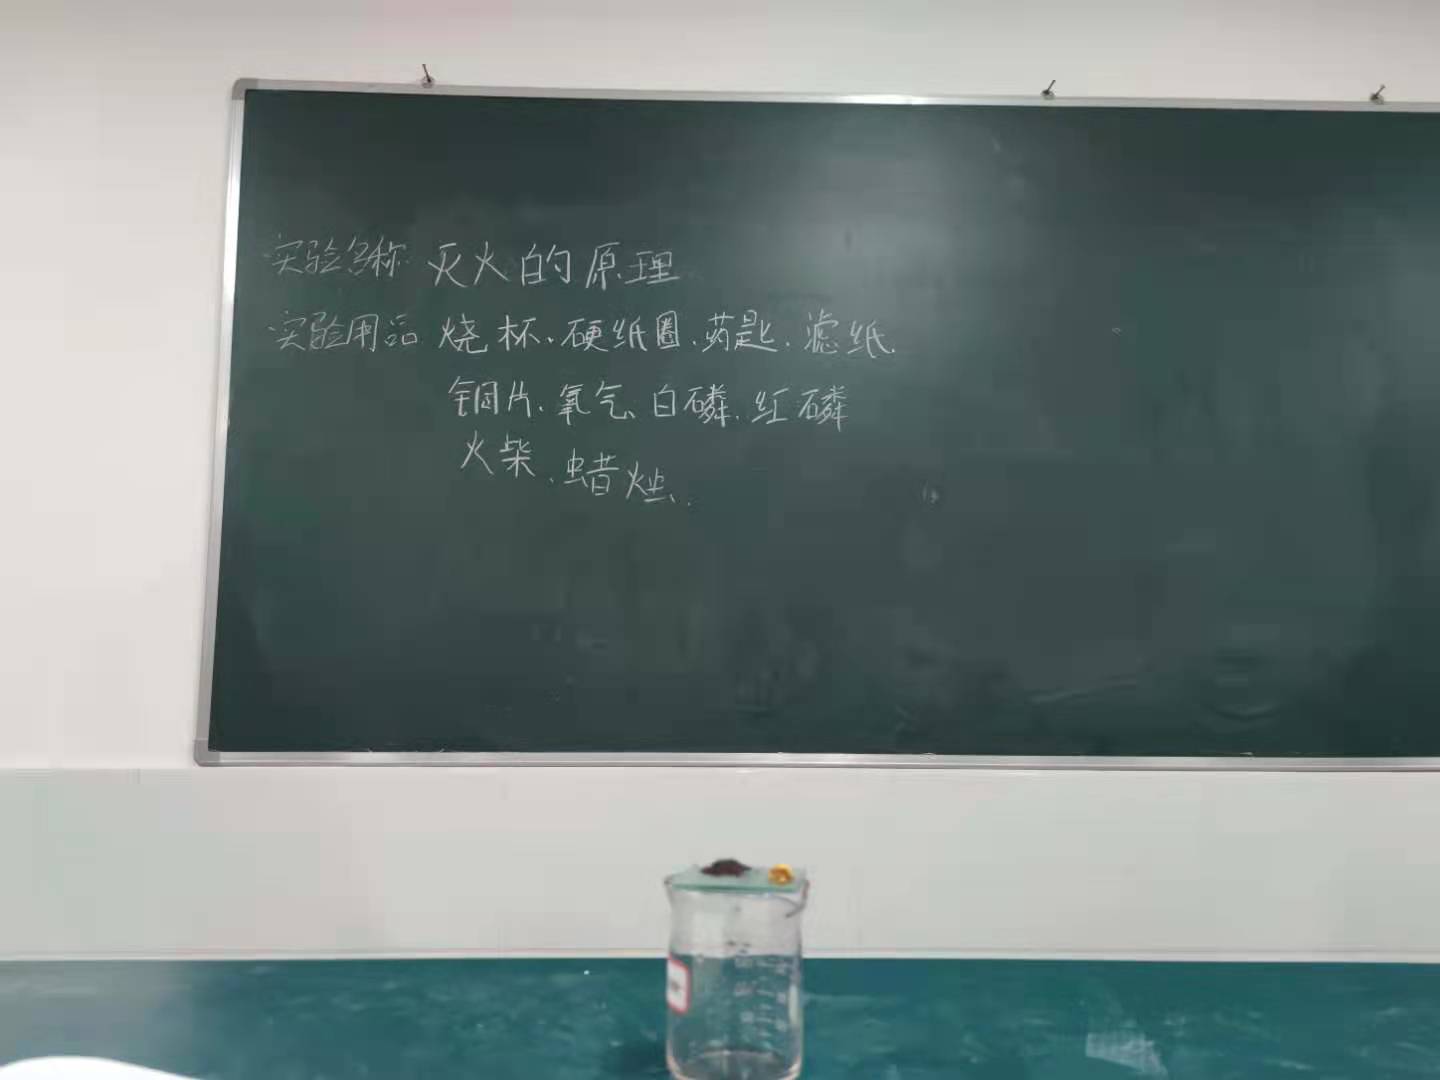 实验名称 灭火的原理
实验用品 烧杯、硬纸圈、药匙、滤纸、
铜片、氧气、白磷、红磷
火柴、蜡烛、